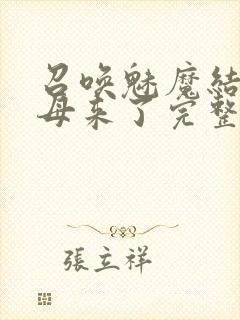 召唤魅魔結
母来了完整
張立祥